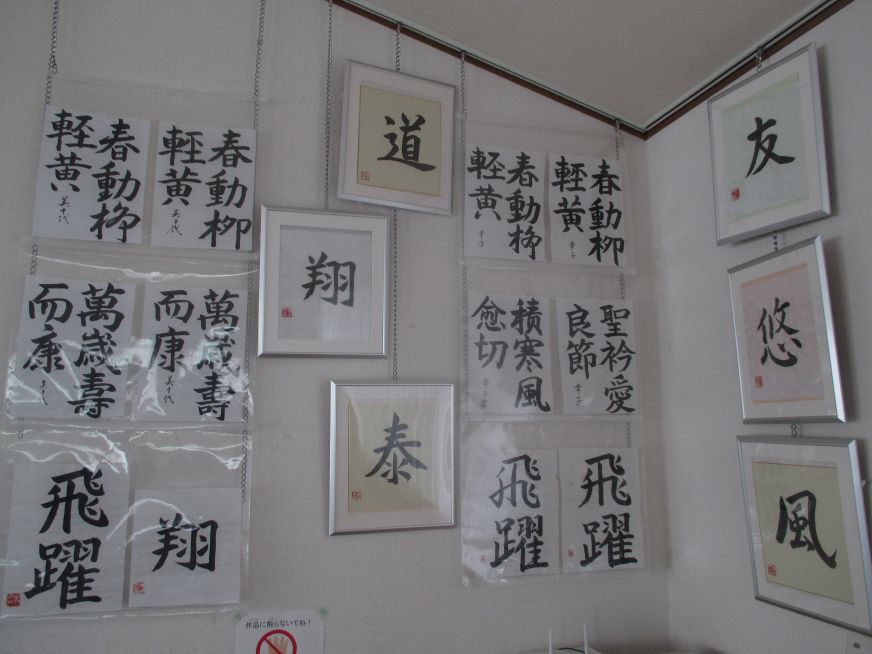 春動柳
軽黄
美千代
春動柳
軽黄
美千代
萬歳壽
而康
美千代
萬歳壽
而康
美千代
飛躍
翔
道
翔
泰
春動柳
軽黄
幸子
春動柳
軽黄
幸子
積寒風
愈切
幸子書
聖衿愛
良節
幸子
飛躍
飛躍
友
悠
風
作品に触らないでね！